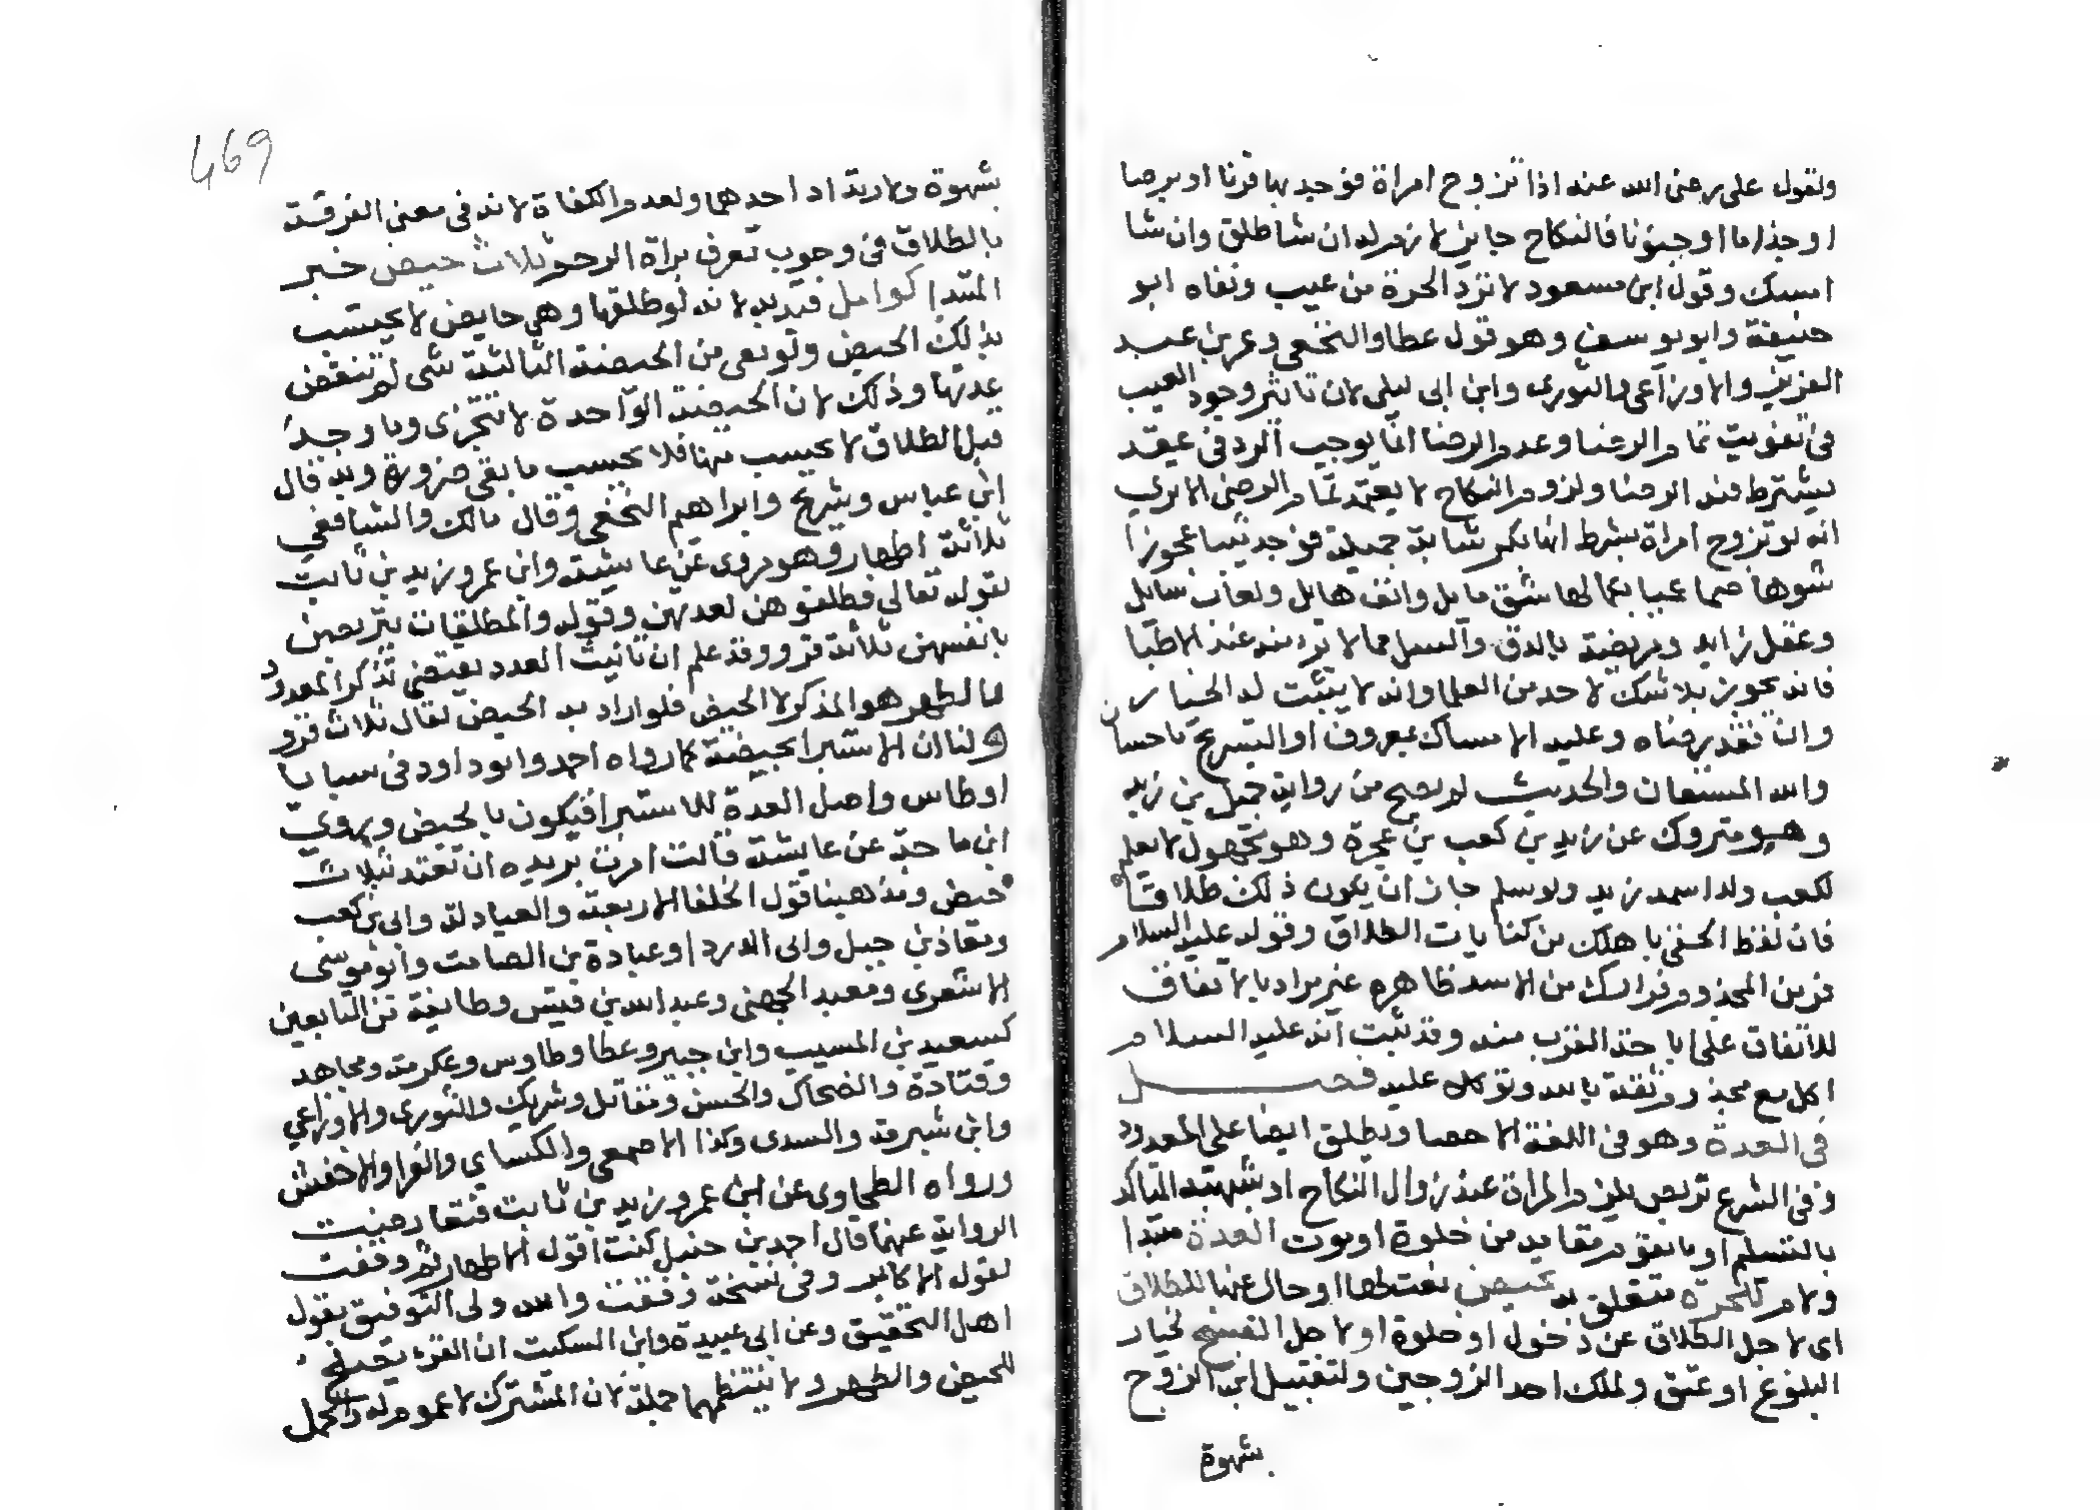 ولقول على رضى الله عنه اذا تزوج امراة فوجد بها قرنا او برصا
او جذاما او جنونا فالنكاح جايز لازم له ان شا طلق وان شا
امسك وقول ابن مسعود لا ترد الحرة من عيب ونفاه ابو
حنيفة وابو يوسف وهو قول عطا والنخعي وعمر بن عبد
العزيز والاوزاعى والثورى وابن ابى ليلى لان تاثير وجود العيب
فى تفويت تمام الرضا وعدم الرضا انما يوجب الرد فى عقد
يشترط فيه الرضا ولزوم النكاح لا يعتمد تمام الرضى الا يرى
انه لو تزوج امراة بشرط انها بكر شابة جميلة فوجد ثيبا عجوزا
شوها صما عميا لها شق مايل وانف هايل ولعاب سايل
وعقل زايد ومريضة بالدق والسل مما لا ترد منه عند الاطبا
فانه يجوز بلا شك لاحد من العلما وانه لا يثبت له الخيار
وان فقد رضاه وعليه الامساك بمعروف او التسريح باحسان
والله المستعان والحديث لم يصح من رواية جميل بن زيد
وهو متروك عن زيد بن كعب بن عجرة وهو مجهول لا يعلم
لكعب ولد اسمه زيد ولو سلم جاز ان يكون ذلك طلاقا
فان لفظ الحقى باهلك من كنايات الطلاق وقوله عليه السلام
فر من المجذوم فرارك من الاسد ظاهره غير مراد بالاتفاق
للاتفاق على اباحة القرب منه وقد ثبت انه عليه السلام
اكل مع مجذوم ثقة بالله وتوكلا عليه فصل
فى العدة وهو فى اللغة الاحصا ويطلق ايضا على المعدود
وفى الشرع تربص يلزم المراة عند زوال النكاح او شبهته المتاكد
بالتسليم او ما يقوم مقامه من خلوة او موت العدة مبتدا
ولام للحرة متعلق به تحيض نعت لها او حال عنها للطلاق
اى لاجل الطلاق عن دخول او خلوة او لاجل الفسخ لخيار
البلوغ او عتق ولملك احد الزوجين ولتقبيل ابن الزوج
شهوة
469
بشهوة ولارتداد احدهما ولعدم الكفاة لانه فى معنى الفرقة
بالطلاق فى وجوب تعرف براة الرحم ثلاث حيض خبر
المبتدا كوامل قيد به لانه لو طلقها وهى حايض لا يحتسب
بذلك الحيض ولو بقى من الحيضة الثالثة شى لم تنقض
عدتها وذلك لان الحيضة الواحدة لا تتجزى وما وجد
قبل الطلاق لا يحسب منها فلا يحسب ما بقى ضرورة وبه قال
ابن عباس وشريح وابراهيم النخعى وقال مالك والشافعي
ثلاثة اطهار وهو مروى عن عايشة وابن عمر وزيد بن ثابت
لقوله تعالى فطلقوهن لعدتهن وقوله والمطلقات يتربصن
بانفسهن ثلاثة قرو وقد علم ان تانيث العدد يقتضى تذكر المعدود
فالطهر هو المذكر لا الحيض فلو اراد به الحيض لقال ثلاث قرو
ولنا ان الاستبرا بحيضة كما رواه احمد وابو داود فى سبايا
اوطاس واصل العدة للاستبرا فيكون بالحيض ويروى
ابن ماجة عن عايشة قالت امرت بريره ان تعتد بثلاث
حيض ومذهبنا قول الخلفا الاربعة والعبادلة وابى بن كعب
ومعاذ بن جبل وابى الدردا وعبادة بن الصامت وابو موسى
الاشعرى ومعبد الجهنى وعبد الله بن قيس وطايفة من التابعين
كسعيد بن المسيب وابن جبير وعطا وطاوس وعكرمة ومجاهد
وقتادة والضحاك والحسن ومقاتل وشريك والثورى والاوزاعي
وابن شبرمة والسدى وكذا الاصمعى والكساي والفرا والاخفش
ورواه الطحاوى عن ابن عمر وزيد بن ثابت فتعارضت
الرواية عنهما قال احمد بن حنبل كنت اقول الاطهار ثم وقفت
لقول الاكابر وفى نسخة وقفت والله ولى التوفيق بقول
اهل التحقيق وعن ابى عبيدة وابن السكيت ان القرء
للحيض والطهر ولا ينتظمهما جملة لان المشترك لا عموم له والحمل